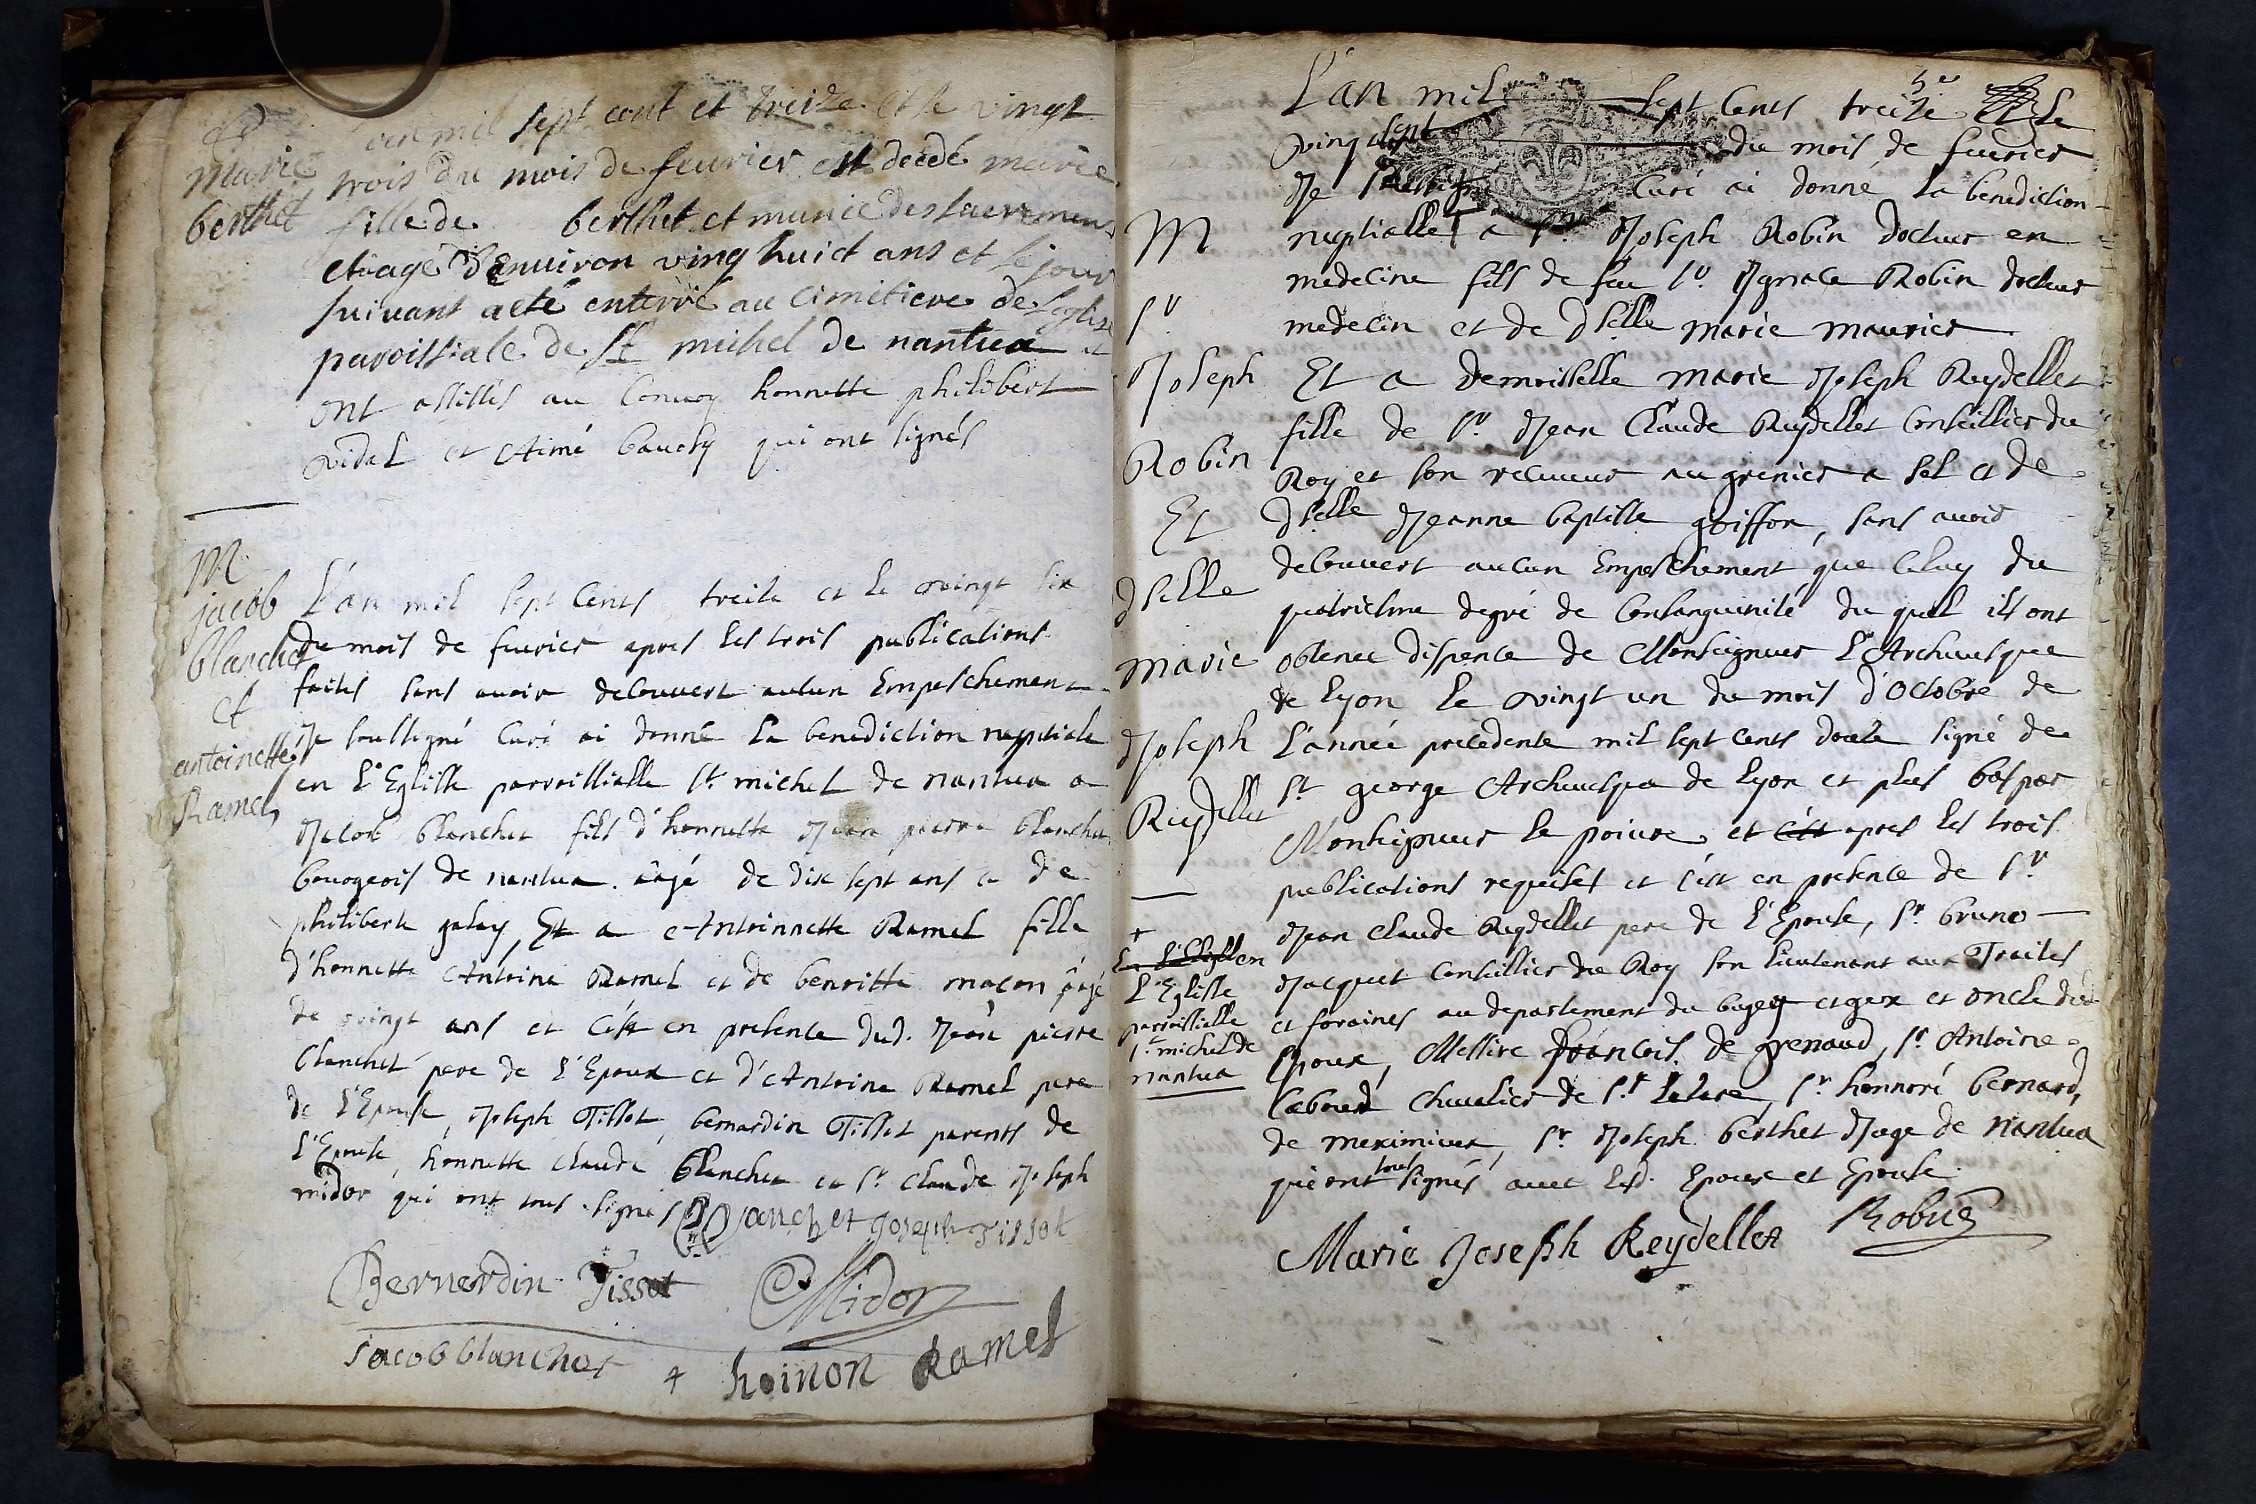 D
marie
berthet
l'an mil sept cent et treize et le vingt
trois du mois de feurier est decedé marie
fille de berthet et munie des sacremens
et âagé d'enuiron ving huict ans et le jour
suiuant a eté enterré au cimitiere de l'eglise
paroissiale de St michel de nantua et
ont assistés au Conuoy honnette philibert
vidal et Aimé baudy qui ont signés
M
jacob
blanchet
et
antoinette
Ramel
L'an mil sept Cents treize et le vingt six
du mois de feurier apres les trois publications
faites sans auoir decouuert aucun Empeschement
Je soussigné Curé ai donné la benediction nuptiale
en l'Eglisse parroissialle St michel de nantua a
Jacob blanchet fils d'honnette Jean pierre blanchet
bourgeois de nantua âagé de dix sept ans et de
philiberte galay, Et a Antoinnette Ramel fille
d'honnette Antoine Ramel et de benoitte macon âagé
de vingt ans et c'est en presence dud. Jean pierre
blanchet pere de l'Epoux et d'Antoine Ramel pere
de l'Epouse, Joseph Tissot, bernardin Tissot parents de
l'Epouse, honnette Claude blanchet et Sr Claude Joseph
midor qui ont tous signés Blanchet Joseph Tissot
Bernerdin Tissot Midor
Jacob blanchet + hoinon Ramel
M
Sr
Joseph
Robin
Et
dselle
marie
Joseph
Reydellet
+
en
l'Eglisse
parroissialle
St michel de
nantua
L'an mil sept Cents treize le
vingt sept du mois de feurier
Je soussigné Curé ai donné la benediction
nuptialle + a Sr Joseph Robin docteur en
medecine fils de feu Sr Ignace Robin docteur
medecin et de dselle marie maurier
Et a demoisselle marie Joseph Reydellet
fille de Sr Jean Claude Reydellet Conseillier du
Roy et son receueur au grenier a sel et de
dselle Jeanne baptiste goiffon, sans auoir
decouuert aucun Empeschement que celuy du
quatriesme degré de Consanguinité du quel ils ont
obtenee dispence de Monseigneur l'Archeuesque
de lyon le vingt un du mois d'Octobre de
l'année precedente mil sept cents douze signé de
St george Archeuesque de lyon et plus bas par
Monseigneur le poiure et c'est apres les trois
publications requises et c'est en presence de Sr
Jean Claude Reydellet pere de l'Epouse, Sr bruno
Jacquet Conseillier du Roy son lieutenant aux Traites
et foraines au departement du bugey et gex et oncle dud
Epoux, Messire francois de grenaud, Sr Antoine
chevalier de St lazare, Sr honnoré bernard,
de meximieux, Sr Joseph berthet Juge de nantua
qui ont tous signés auec lesd. Epoux et Epouse
Marie Joseph Reydellet Robin